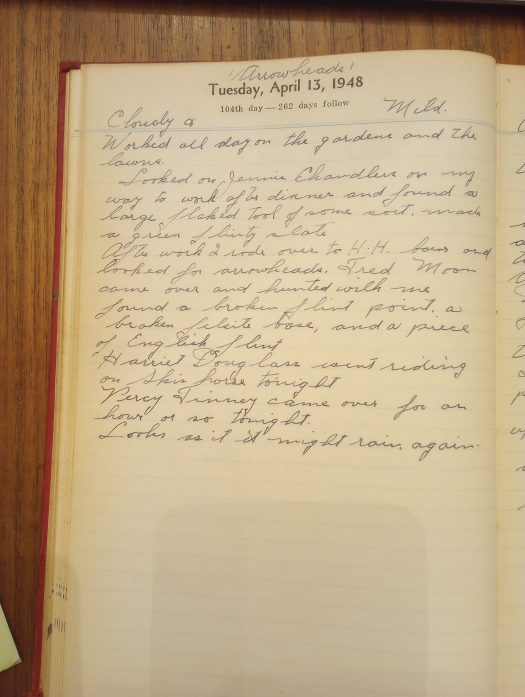 "Arrowheads"
Tuesday, April 13, 1948
104th day — 262 days follow
Cloudy & Mild.
Worked all day on the gardens and the
lawns.
Looked on Jennie Chandlers on my
way to work after dinner and found a
large flaked tool of some sort, made
a green flinty slate
After work I rode over to H.H. and
looked for arrowheads. Fred Moon
came over and hunted with me
found a broken flint point, a
broken felsite base, and a piece
of English flint
Harriet Douglass went riding
on horse tonight
Percy Finney came over for an
hour or so tonight.
Looks as if it might rain again.